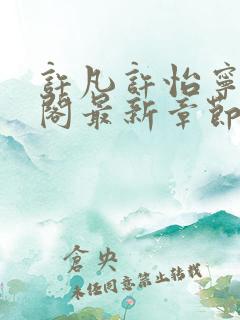 許凡許怡寧
閣最新章節
倉央
未經同意禁止轉載